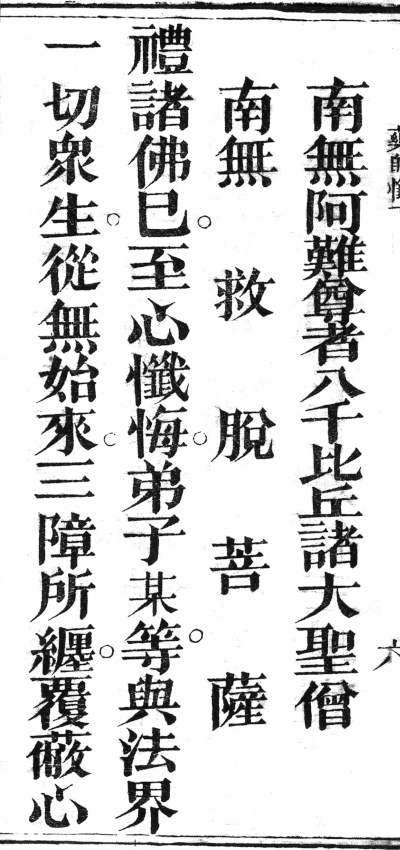 藥師懺
六
南無阿難尊者八千比丘諸大聖僧
南無救脫菩薩
禮諸佛已。至心懺悔。弟子某等。與法界
一切眾生。從無始來。三障所纏。覆蔽心